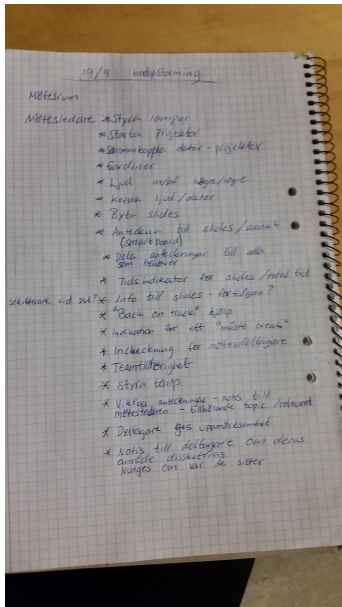 19/9 bodystorming
Mötesrum
Mötesledare * Styra lampor
* Starta projektor
* Sammankoppla dator - projektor
* Gardiner
* Ljud av/på högre/lägre
* Koppla ljud/dator
* Byta slides
* Anteckna till slides/annat
(smartboard)
* Dela anteckningar till alla
som behöver
* Tidsindikator för slides/total tid
sekreterare vid sid? * Info till slides - förfrågan?
* "Back on track" hjälp
* Indikation för ett "måste break"
* Incheckning för mötesdeltagare
* Teamtillhörighet
* Styra temp
* Viktiga anteckningar - notis till
mötesledaren - tillhörande topic/relevant
* Deltagare uppmärksamhet
* Notis till deltagare om deras
område diskuteras
Nudges om var de sitter